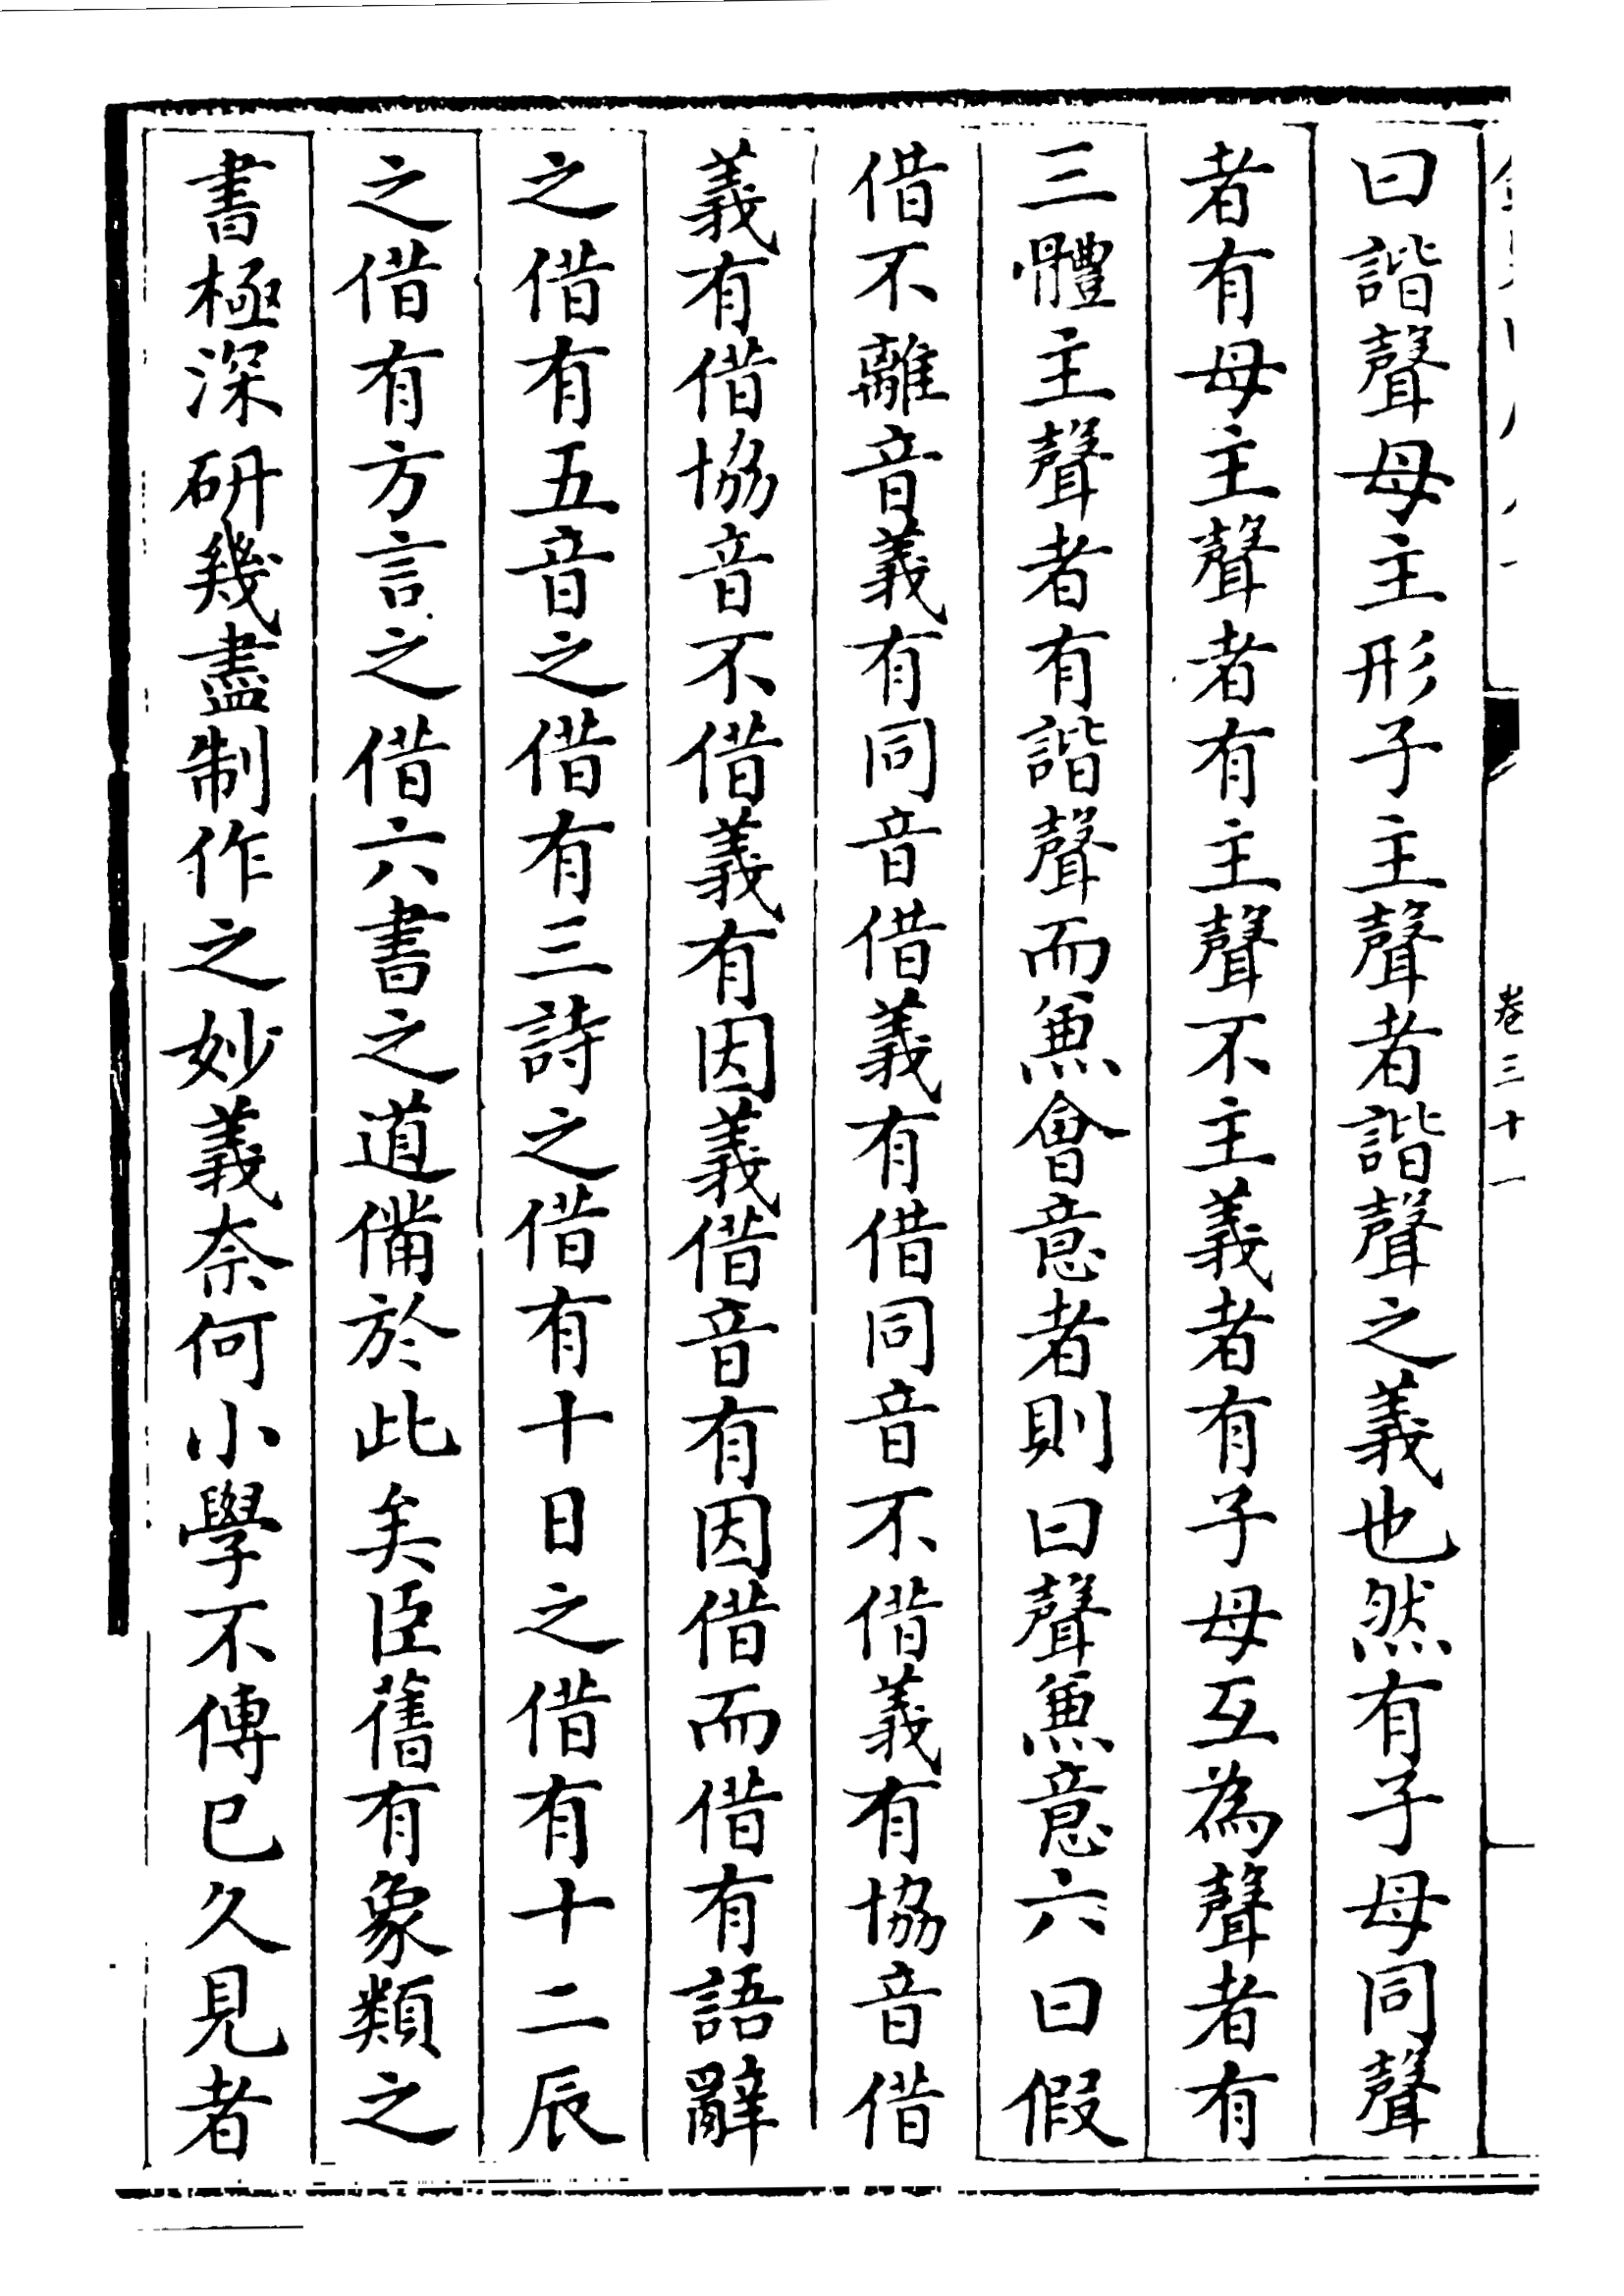 曰諧聲母主形子主聲者諧聲之義也然有子母同聲
者有母主聲者有主聲不主義者有子母互為聲者有
三體主聲者有諧聲而兼會意者則曰聲兼意六曰假
借不離音義有同音借義有借同音不借義有協音借
義有借協音不借義有因義借音有因借而借有語辭
之借有五音之借有三詩之借有十日之借有十二辰
之借有方言之借六書之道備於此矣臣舊有象類之
書極深研幾盡制作之妙義奈何小學不傳已久見者
卷三十一